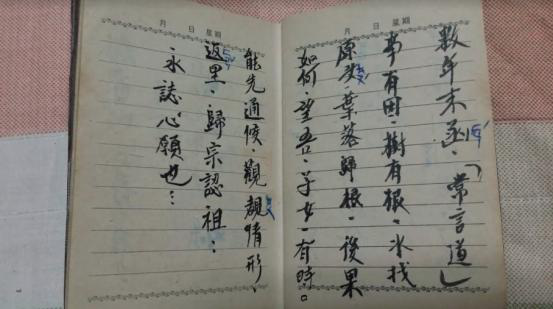 月 日 星期
數年末函。「常言道」
事有因。樹有根。水找
原头。葉落歸根。後果
如何。望吾子女。有時。
月 日 星期
能先通候。觀情形。
返里。歸宗認祖:
永誌心願也…